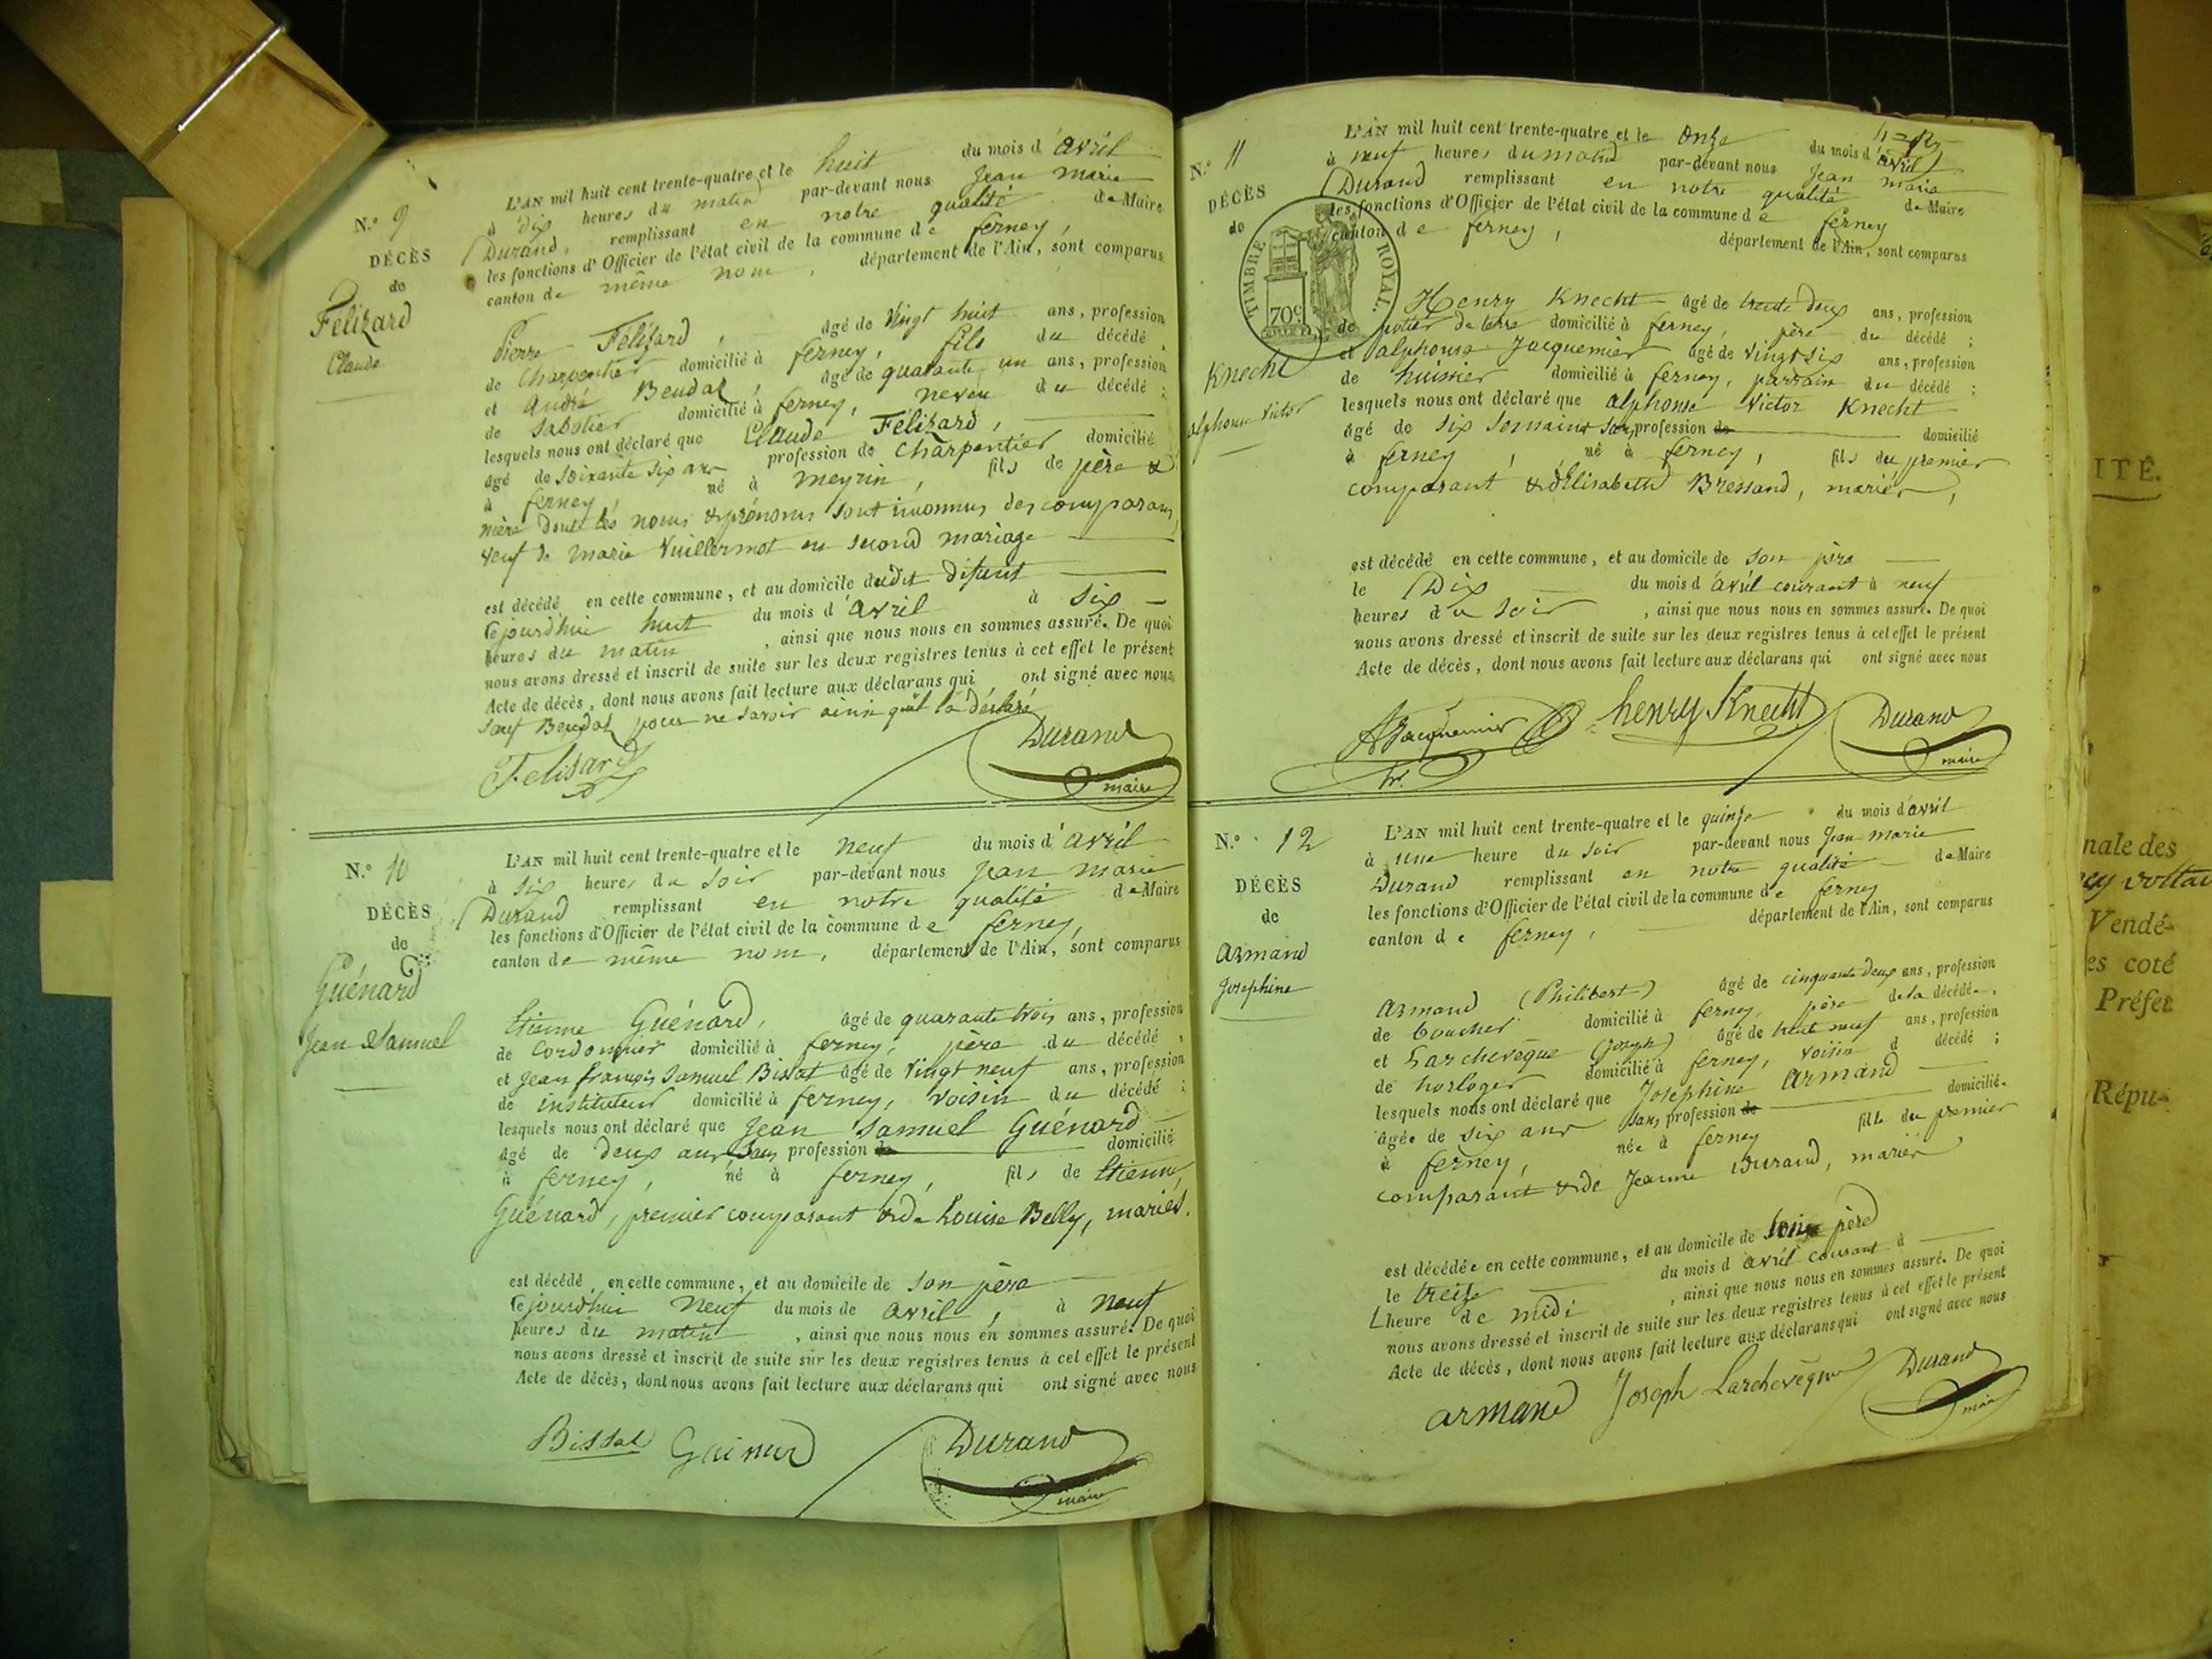 N.º 9
DÉCÈS
de
Félizard
Claude
L'AN mil huit cent trente-quatre et le huit du mois d'avril
à dix heures du matin par-devant nous Jean marie
Durand, remplissant en notre qualité de Maire
les fonctions d'Officier de l'état civil de la commune de ferney,
canton de même nom, département de l'Ain, sont comparus
Pierre Félizard, âgé de vingt huit ans, profession
de Charpentier domicilié à ferney, fils du décédé,
et andré Beudat, âgé de quarante un ans, profession
de Sabotier domicilié à ferney, neveu du décédé ;
lesquels nous ont déclaré que Claude Félizard,
âgé de soixante six ans profession de Charpentier domicilié
à ferney, né à meyrin, fils de père &
mère dont les noms & prénoms sont inconnus des comparans,
veuf de marie Vuillermot en second mariage
est décédé en cette commune, et au domicile dudit défunt
cejourd'hui huit du mois d'avril à six
heures du matin, ainsi que nous nous en sommes assuré. De quoi
nous avons dressé et inscrit de suite sur les deux registres tenus à cet effet le présent
Acte de décès, dont nous avons fait lecture aux déclarans qui ont signé avec nous,
sauf Beudat pour ne savoir ainsi qu'il l'a déclaré
Felisard Durand
maire
N.º 10
DÉCÈS
de
Guénard
Jean Samuel
L'AN mil huit cent trente-quatre et le neuf du mois d'avril
à six heures du soir par-devant nous Jean marie
Durand remplissant en notre qualité de Maire
les fonctions d'Officier de l'état civil de la commune de ferney,
canton de même nom, département de l'Ain, sont comparus
Etienne Guénard, âgé de quarante trois ans, profession
de Cordonnier domicilié à ferney, père du décédé,
et Jean françois Samuel Bissat âgé de vingt neuf ans, profession
de instituteur domicilié à ferney, voisin du décédé ;
lesquels nous ont déclaré que Jean Samuel Guénard
âgé de deux ans, sans profession de domicilié
à ferney, né à ferney, fils de Etienne
Guénard, premier comparant & de Louise Belly, mariés.
est décédé en cette commune, et au domicile de son père
cejourd'hui neuf du mois de avril, à neuf
heures du matin, ainsi que nous nous en sommes assuré. De quoi
nous avons dressé et inscrit de suite sur les deux registres tenus à cet effet le présent
Acte de décès, dont nous avons fait lecture aux déclarans qui ont signé avec nous
Bissat Durand
maire
N.º 11
DÉCÈS
de
TIMBRE ROYAL.
70 c.
Knecht
alphonse Victor
L'AN mil huit cent trente-quatre et le onze du mois d'avril
à neuf heures du matin par-devant nous Jean marie
Durand remplissant en notre qualité de Maire
les fonctions d'Officier de l'état civil de la commune de ferney
canton de ferney, département de l'Ain, sont comparus
Henry Knecht âgé de trente deux ans, profession
de potier de terre domicilié à ferney, père du décédé ;
et alphonse Jacquemier âgé de vingt six ans, profession
de huissier domicilié à ferney, parrain du décédé ;
lesquels nous ont déclaré que alphonse Victor Knecht
âgé de six semaines sans profession de domicilié
à ferney, né à ferney, fils du premier
comparant & d'Elisabeth Bressand, mariés,
est décédé en cette commune, et au domicile de son père
le Dix du mois d'avril courant à neuf
heures du soir, ainsi que nous nous en sommes assuré. De quoi
nous avons dressé et inscrit de suite sur les deux registres tenus à cet effet le présent
Acte de décès, dont nous avons fait lecture aux déclarans qui ont signé avec nous
AJacquemier henry Knecht Durand
maire
N.º 12
DÉCÈS
de
Armand
Josephine
L'AN mil huit cent trente-quatre et le quinze du mois d'avril
à une heure du soir par-devant nous Jean marie
Durand remplissant en notre qualité de Maire
les fonctions d'Officier de l'état civil de la commune de ferney
canton de ferney, département de l'Ain, sont comparus
Armand (Philibert) âgé de cinquante deux ans, profession
de boucher domicilié à ferney, père de la décédée,
et Larchevêque (Joseph) âgé de trente neuf ans, profession
de horloger domicilié à ferney, voisin d décédé ;
lesquels nous ont déclaré que Josephine Armand
âgée de six ans sans profession de domiciliée
à ferney, née à ferney fille du premier
comparant & de Jeanne Durand, mariés
est décédée en cette commune, et au domicile de son père
le treize du mois d'avril courant à
L'heure de midi, ainsi que nous nous en sommes assuré. De quoi
nous avons dressé et inscrit de suite sur les deux registres tenus à cet effet le présent
Acte de décès, dont nous avons fait lecture aux déclarans qui ont signé avec nous
armand Joseph Larchevêque Durand
maire
ITÉ.
nale des
Vendé-
es coté
Préfet
Répu-